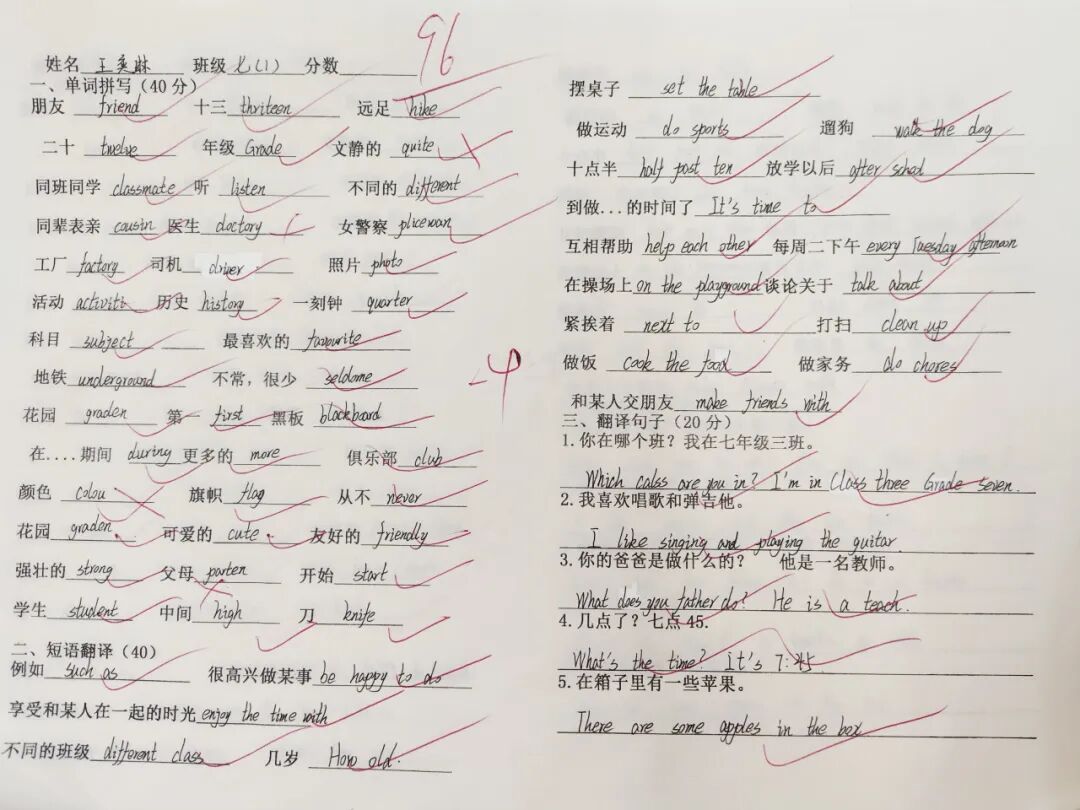 96
姓名 王奕麻 班级 七(1) 分数
一、单词拼写(40分)
朋友 friend 十三 thriteen 远足 hike
二十 twelve 年级 Grade 文静的 quite
同班同学 classmate 听 listen 不同的 different
同辈表亲 cousin 医生 doctory 女警察 plicewan
工厂 factory 司机 driver 照片 photo
活动 activiti 历史 history 一刻钟 quarter
科目 subject 最喜欢的 favourite
地铁 underground 不常，很少 seldome
-4
花园 graden 第一 first 黑板 blackboard
在....期间 during 更多的 more 俱乐部 club
颜色 colou 旗帜 flag 从不 never
花园 graden 可爱的 cute 友好的 friendly
强壮的 strong 父母 parten 开始 start
学生 student 中间 high 刀 knife
二、短语翻译(40)
例如 such as 很高兴做某事 be happy to do
享受和某人在一起的时光 enjoy the time with
不同的班级 different class 几岁 How old.
摆桌子 set the table
做运动 do sports 遛狗 walk the dog
十点半 half past ten 放学以后 after school
到做...的时间了 It's time to
互相帮助 help each other 每周二下午 every Tuesday afternoon
在操场上 on the playground 谈论关于 talk about
紧挨着 next to 打扫 clean up
做饭 cook the food 做家务 do chores
和某人交朋友 make friends with
三、翻译句子(20分)
1.你在哪个班？我在七年级三班。
Which calss are you in? I'm in Class three Grade seven.
2.我喜欢唱歌和弹吉他。
I like singing and playing the guitar.
3.你的爸爸是做什么的？ 他是一名教师。
What does you father do? He is a teach.
4.几点了？七点45.
What's the time? It's 7:45
5.在箱子里有一些苹果。
There are some apples in the box